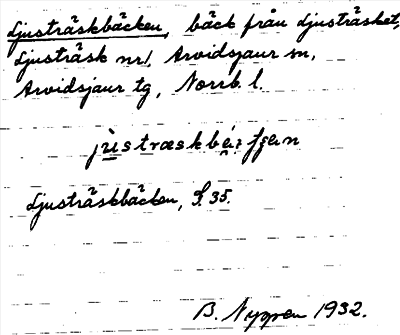 Ljusträskbäcken, bäck från Ljusträsket,
Ljusträsk nr 1, Arvidsjaur sn,
Arvidsjaur tg, Norrb. l.
Ljusträskbäcken, S. 35.
B. Nygren 1932.